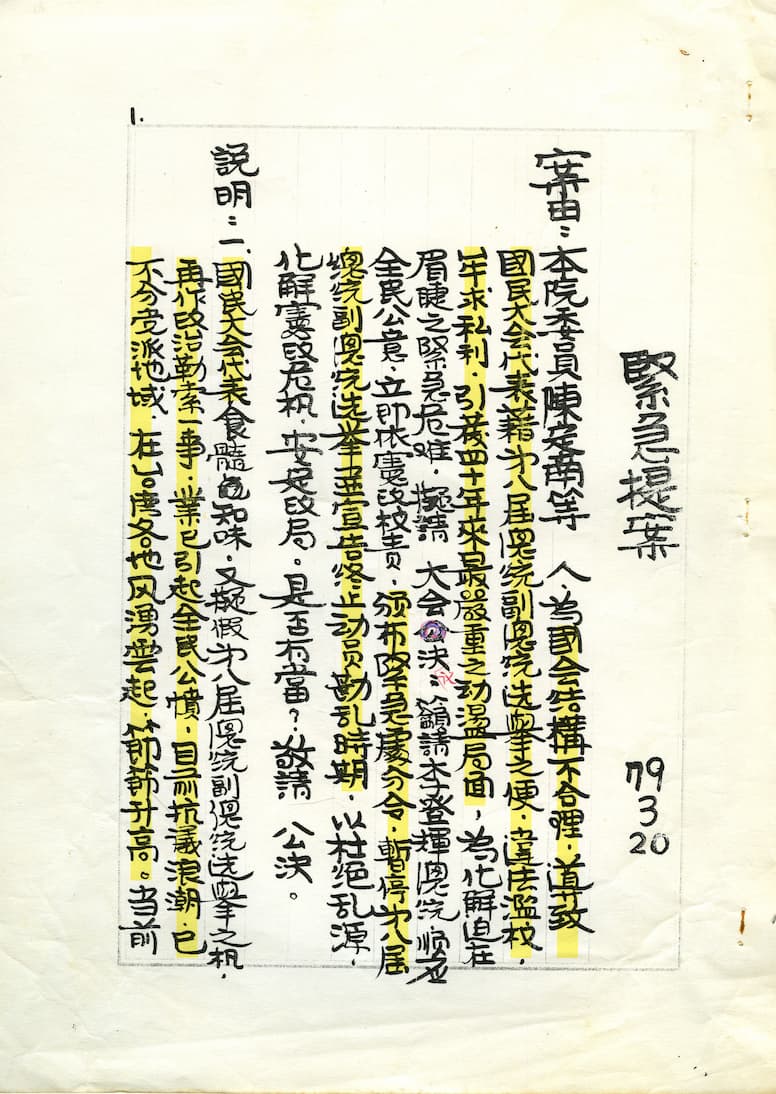 1.
緊急提案
79
3
20
案由:本院委員陳定南等　人，為國会结構不合理，導致
國民大会代表藉第八届總統副總統选舉之便，違法濫权，
牟求私利，引發四十年來最嚴重之动盪局面，為化解迫在
眉睫之緊急危难，擬請　大会決成，籲請李登輝總統順应
全民公意，立即依憲政权责，颁布緊急處分令，暫停第八届
總統副總統选举並宣告终止动员勘乱時期，以杜绝乱源，
化解憲政危机，安定政局。是否有當？敬請　公決。
説明:一、國民大会代表食髓知味，又擬假第八届總統副總统选舉之机，
再作政治勒索一事，業已引起全民公憤，目前抗議浪潮，已
不分党派地域，在台湾各地风湧雲起，節節升高。当前